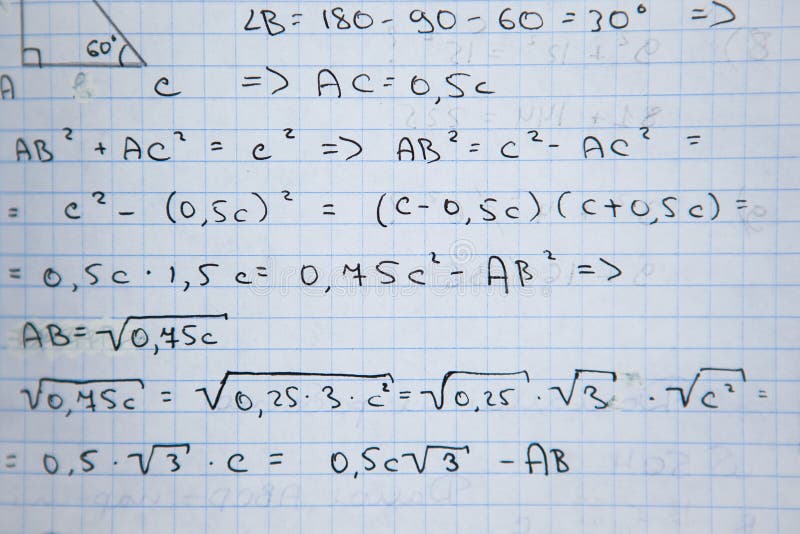 ∠B = 180 - 90 - 60 = 30° =>
60°
A c => AC = 0,5c
AB² + AC² = c² => AB² = c² - AC² =
= c² - (0,5c)² = (c - 0,5c)(c + 0,5c) =
= 0,5c · 1,5c = 0,75c² - AB² =>
AB = √0,75c
√0,75c = √0,25 · 3 · c² = √0,25 · √3 · √c² =
= 0,5 · √3 · c = 0,5c√3 - AB